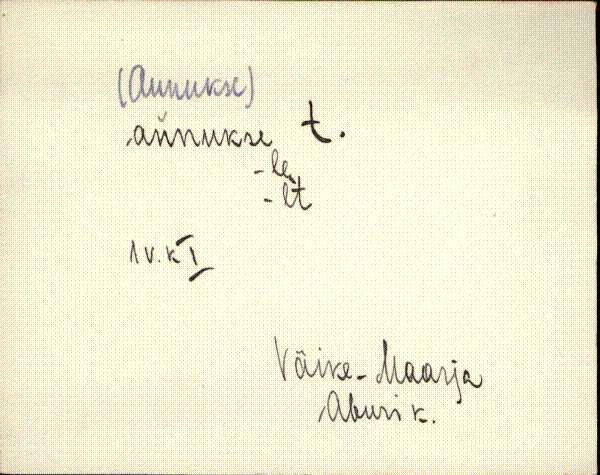 (Annukse)
,aǹnukse t.
-le
-lt
1 v. k I
Väike-Maarja
,Aburi k.